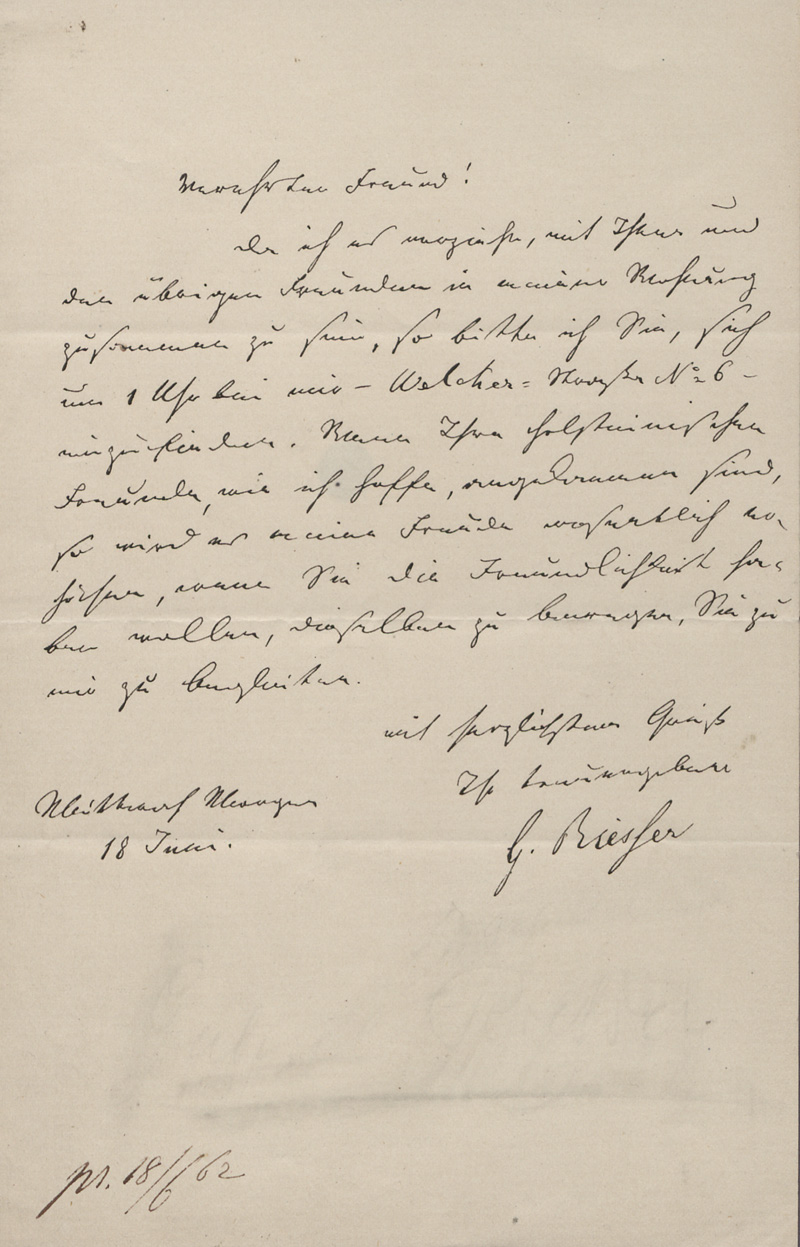 Verehrter Freund!
Da ich es vorziehe, mit Ihnen und
den übrigen Freunden in meiner Wohnung
zusammen zu sein, so bitte ich Sie, sich
um 1 Uhr bei mir – Welcker-Straße No 6 –
einzufinden. Wenn Ihre holsteinischen
Freunde, wie ich hoffe, angekommen sind,
so wird es meine Freude wesentlich er-
höhen, wenn Sie die Freundlichkeit ha-
ben wollen, dieselben zu bewegen, Sie zu
mir zu begleiten.
Mit herzlichstem Gruß
Ihr treuergebener
G. Riesser
Mittwoch Morgen
18 Juni.
pr. 18/6 62